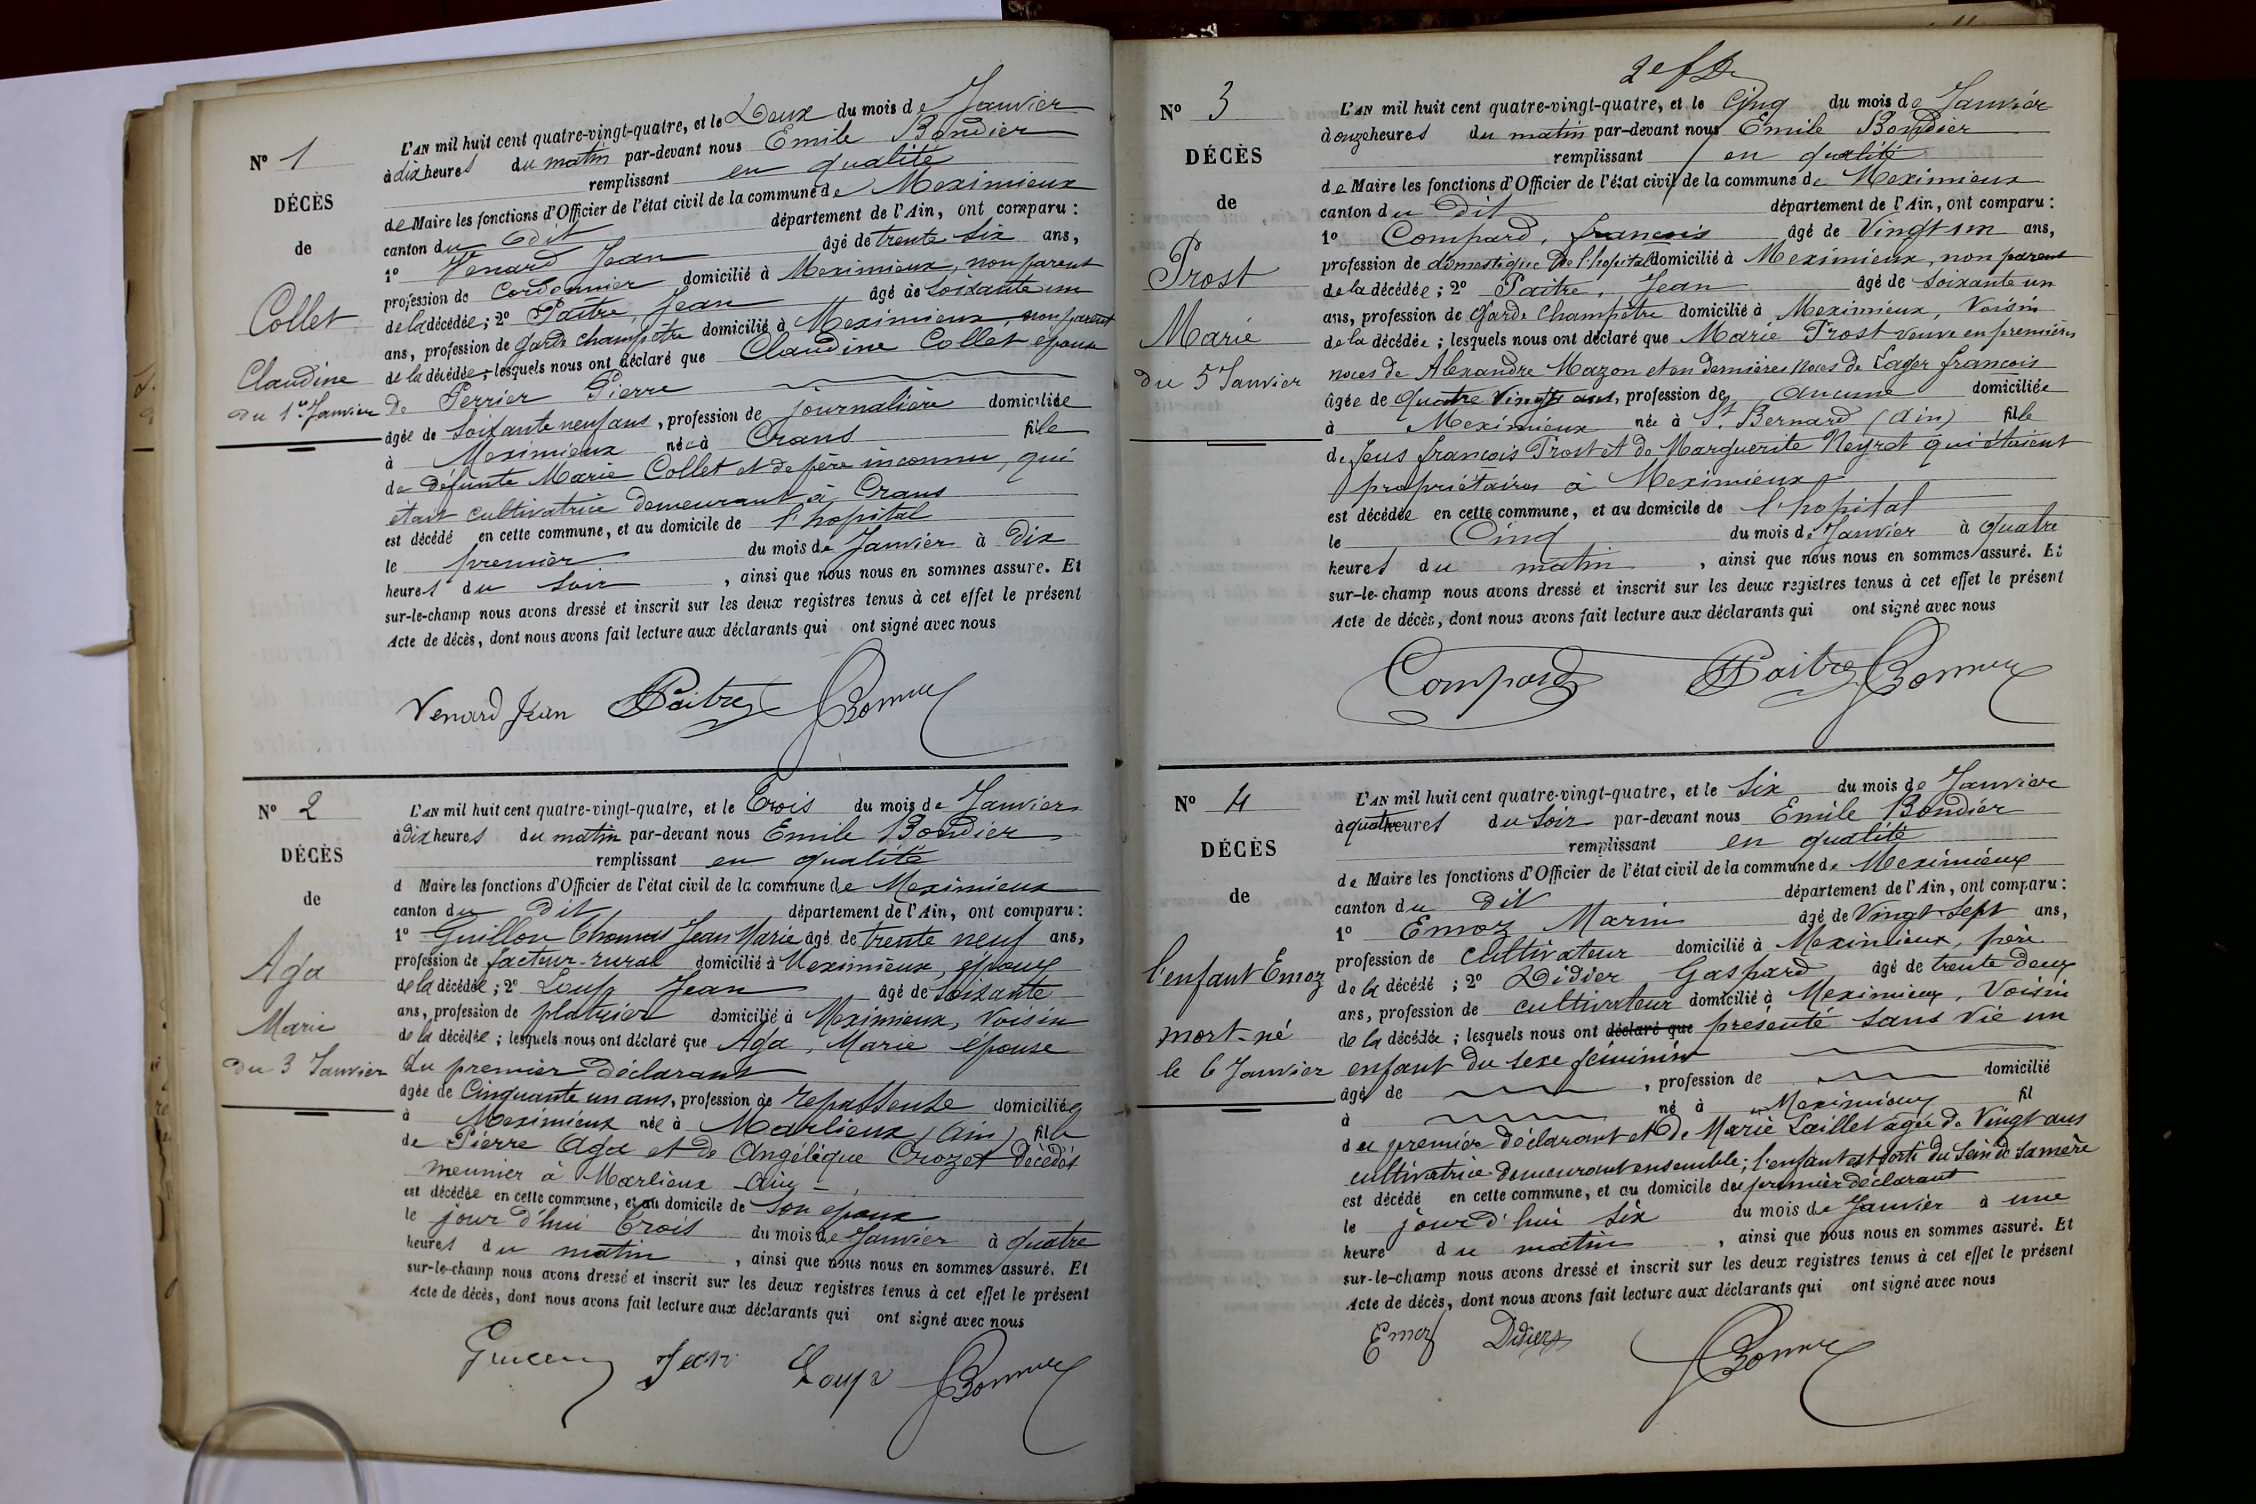 N° 1
DÉCÈS
de
Collet
Claudine
du 1er Janvier
L'AN mil huit cent quatre-vingt-quatre, et le Deux du mois de Janvier
à dix heures du matin par-devant nous Emile Bondier
remplissant en qualité
de Maire les fonctions d'Officier de l'état civil de la commune de Meximieux
canton du dit département de l'Ain, ont comparu :
1° Venard Jean âgé de trente six ans,
profession de Cordonnier domicilié à Meximieux, non parent
de la décédée ; 2° Paitre, Jean âgé de soixante un
ans, profession de garde champêtre domicilié à Meximieux, non parent
de la décédée ; lesquels nous ont déclaré que Claudine Collet epouse
De Perrier Pierre
âgée de soixante neuf ans, profession de journalière domiciliée
à Meximieux née à Crans fille
de défunte Marie Collet et de père inconnu, qui
était cultivatrice demeurant à Crans
est décédé en cette commune, et au domicile de l'hopital
le premier du mois de Janvier à Dix
heures du soir , ainsi que nous nous en sommes assuré. Et
sur-le-champ nous avons dressé et inscrit sur les deux registres tenus à cet effet le présent
Acte de décès, dont nous avons fait lecture aux déclarants qui ont signé avec nous
Venard Jean Paitre
N° 2
DÉCÈS
de
Aga
Marie
du 3 Janvier
L'AN mil huit cent quatre-vingt-quatre, et le Trois du mois de Janvier
à dix heures du matin par-devant nous Emile Bondier
remplissant en qualité
d Maire les fonctions d'Officier de l'état civil de la commune de Meximieux
canton du dit département de l'Ain, ont comparu :
1° Guillon Thomas Jean Marie âgé de trente neuf ans,
profession de facteur-rural domicilié à Meximieux, époux
de la décédée ; 2° Loup Jean âgé de soixante
ans, profession de platrier domicilié à Meximieux, Voisin
de la décédée ; lesquels nous ont déclaré que Aga, Marie epouse
du premier Déclarant
âgée de Cinquante un ans, profession de repasseuse domiciliée
à Meximieux née à Marlieux (Ain) fille
de Pierre Aga et de Angélique Crozet Décédés
meunier à Marlieux
est décédée en cette commune, et au domicile de son epoux
le jour d'hui Trois du mois de Janvier à quatre
heures du matin , ainsi que nous nous en sommes assuré. Et
sur-le-champ nous avons dressé et inscrit sur les deux registres tenus à cet effet le présent
Acte de décès, dont nous avons fait lecture aux déclarants qui ont signé avec nous
Jean Loup
N° 3
DÉCÈS
de
Prost
Marie
du 5 Janvier
L'AN mil huit cent quatre-vingt-quatre, et le Cinq du mois de Janvier
à onze heures du matin par-devant nous Emile Bondier
remplissant en qualité
de Maire les fonctions d'Officier de l'état civil de la commune de Meximieux
canton du Dit département de l'Ain, ont comparu :
1° Compard, francois âgé de Vingt un ans,
profession de domestique de l'hopital domicilié à Meximieux, non parent
de la décédée ; 2° Paitre, Jean âgé de soixante un
ans, profession de Garde Champêtre domicilié à Meximieux, Voisin
de la décédée ; lesquels nous ont déclaré que Marie Prost veuve en premières
noces de Alexandre Mazon et en dernières noces de Lager francois
âgée de Quatre Vingts ans, profession de aucune domiciliée
à Meximieux née à St. Bernard (Ain) fille
de feus francois Prost et de Marguerite Neyret qui étaient
propriétaires à Meximieux
est décédée en cette commune, et au domicile de l'hopital
le Cinq du mois de Janvier à quatre
heures du matin , ainsi que nous nous en sommes assuré. Et
sur-le-champ nous avons dressé et inscrit sur les deux registres tenus à cet effet le présent
Acte de décès, dont nous avons fait lecture aux déclarants qui ont signé avec nous
Compard Paitre
N° 4
DÉCÈS
de
l'enfant Emoz
mort-né
le 6 Janvier
L'AN mil huit cent quatre-vingt-quatre, et le Six du mois de Janvier
à quatre heures du soir par-devant nous Emile Bondier
remplissant en qualité
de Maire les fonctions d'Officier de l'état civil de la commune de Meximieux
canton du dit département de l'Ain, ont comparu :
1° Emoz Marin âgé de Vingt-sept ans,
profession de cultivateur domicilié à Meximieux, père
de la décédé ; 2° Didier Gaspard âgé de trente deux
ans, profession de cultivateur domicilié à Meximieux, Voisin
de la décédée ; lesquels nous ont déclaré que présenté sans vie un
enfant du sexe féminin
âgé de , profession de domicilié
à né à Meximieux fil
du premier déclarant et de Marie Laillet agée de Vingt ans
cultivatrice demeurant ensemble ; l'enfant est sorti du sein de sa mère
est décédé en cette commune, et au domicile du premier déclarant
le jour d'hui six du mois de Janvier à une
heure du matin , ainsi que nous nous en sommes assuré. Et
sur-le-champ nous avons dressé et inscrit sur les deux registres tenus à cet effet le présent
Acte de décès, dont nous avons fait lecture aux déclarants qui ont signé avec nous
Emoz Didier